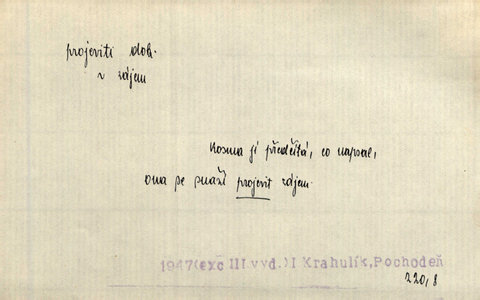 projeviti dok.
v zájem
Kosma jí předčítá, co napsal,
ona se snaží projevit zájem.
1947(exc III.vyd.)I Krahulík,Pochodeň
220,8